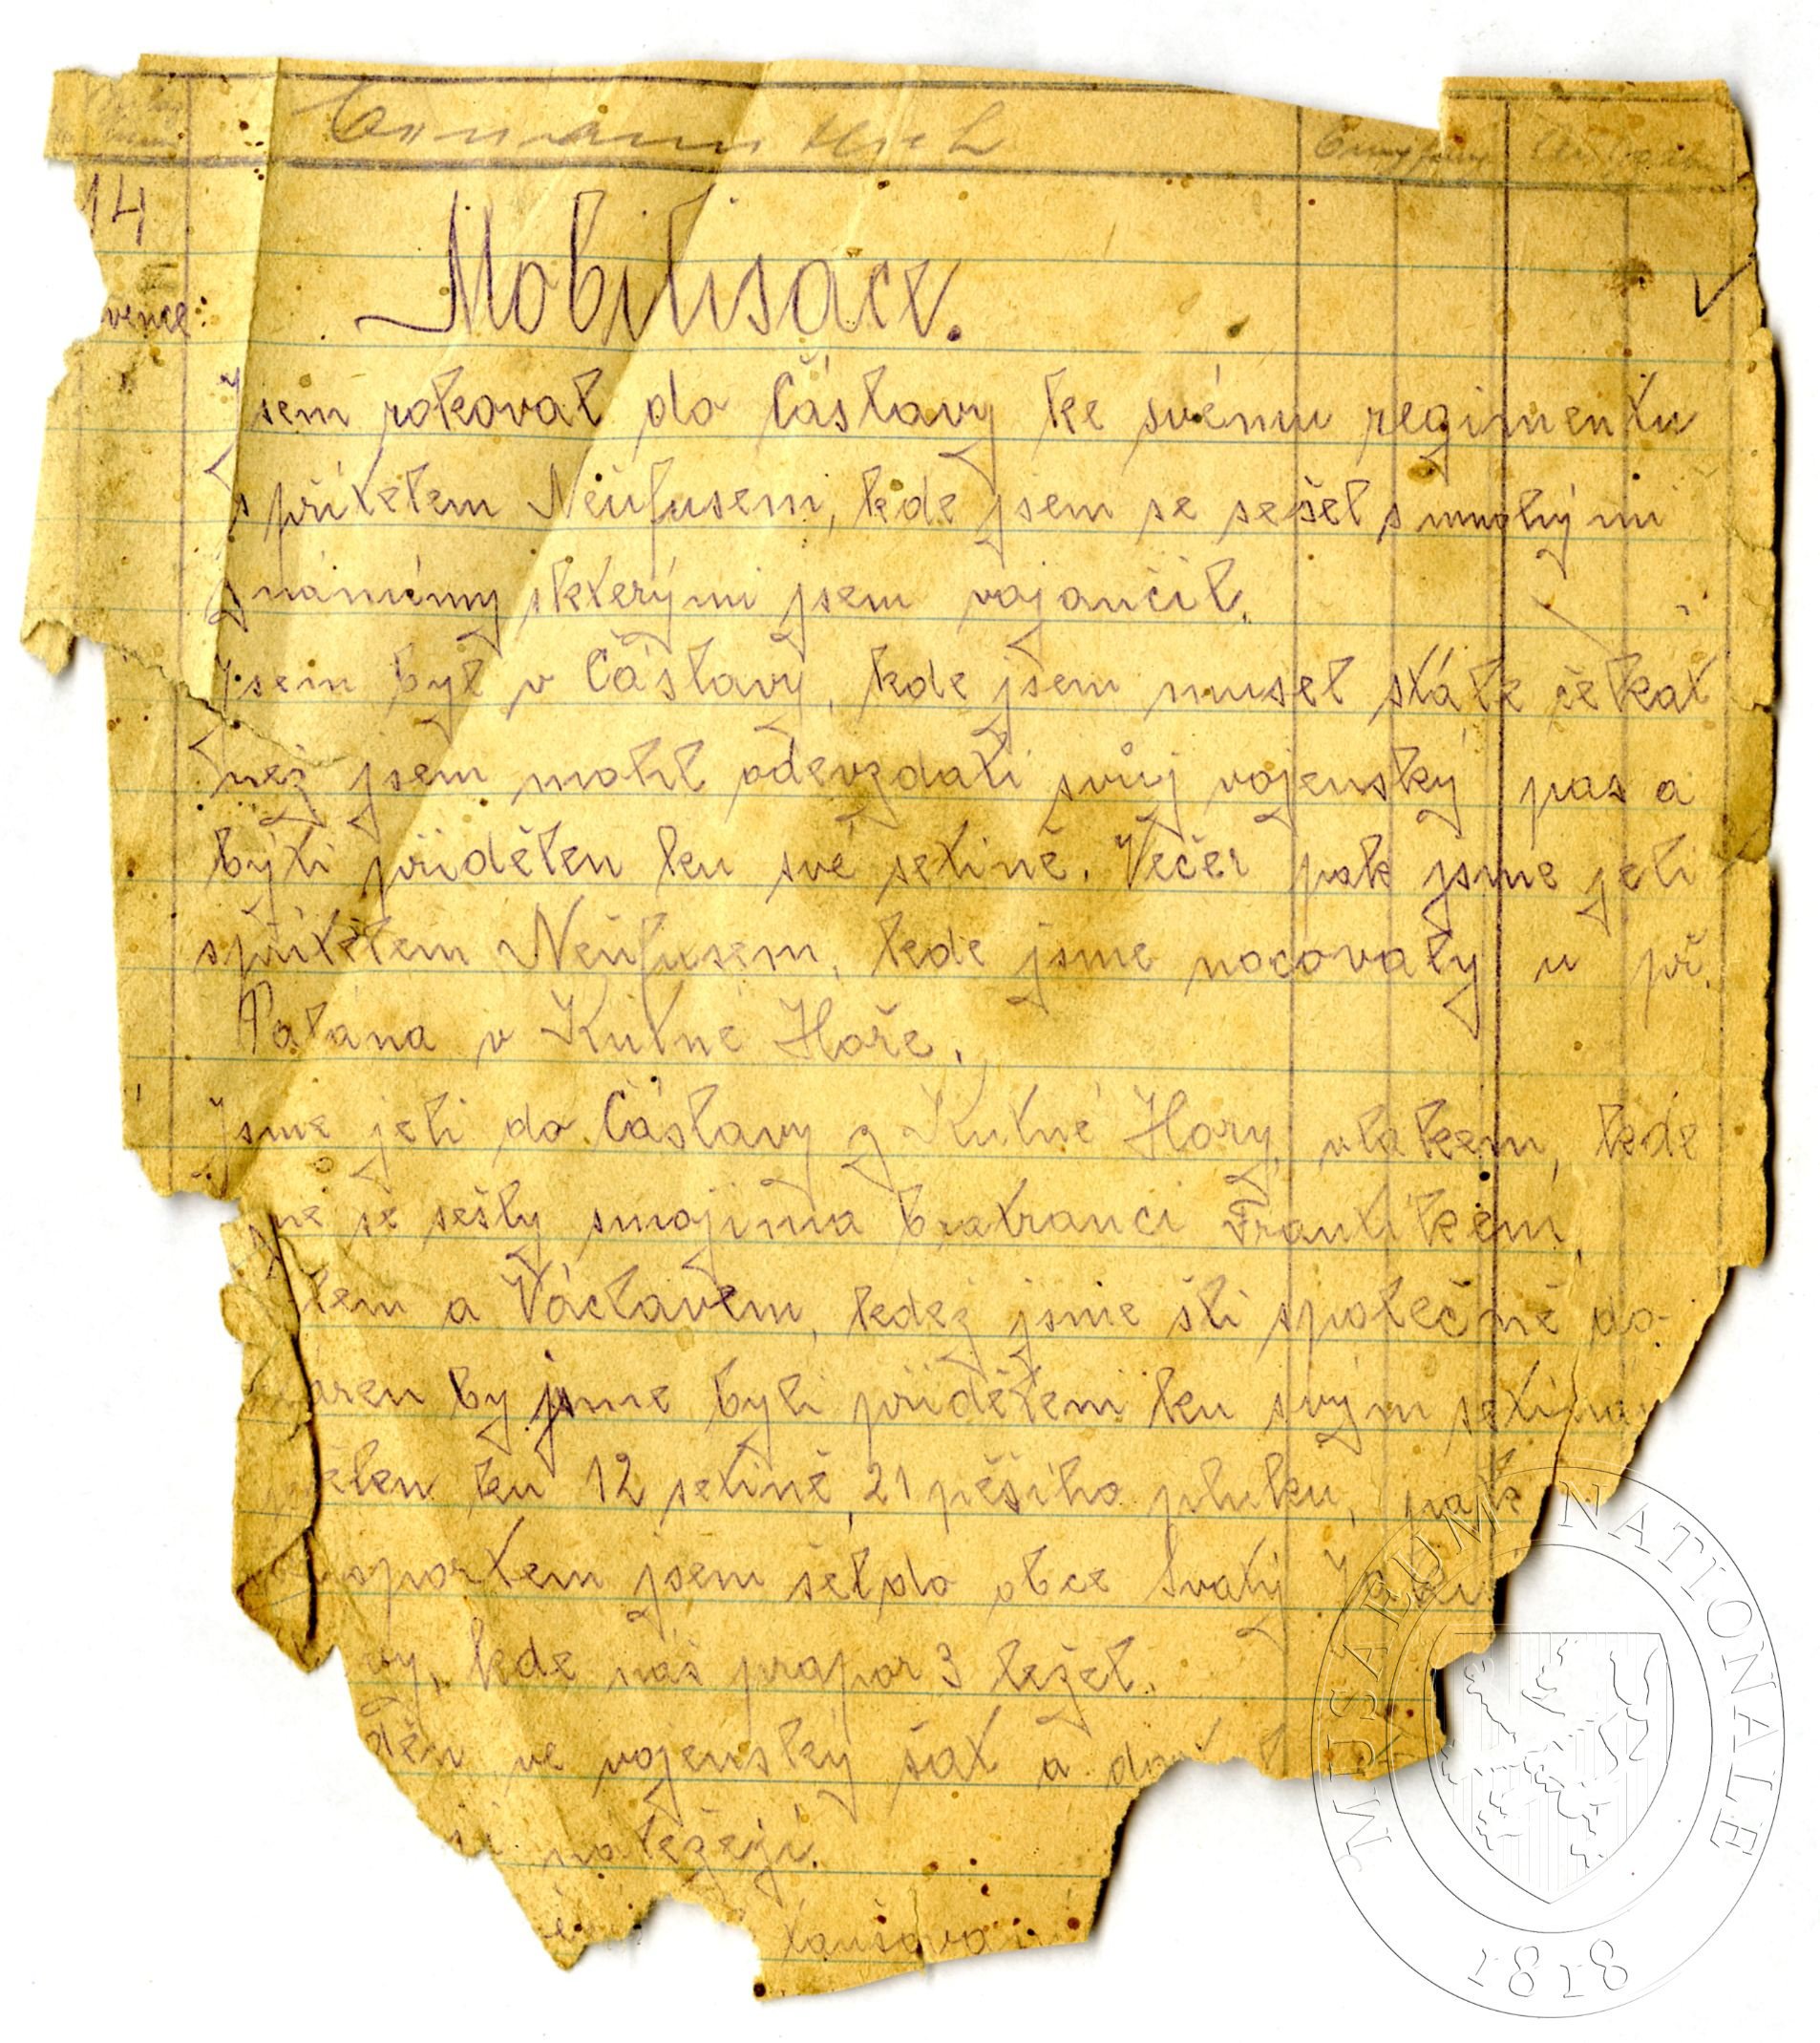 14
Mobilisace.
vence:
Jsem rokoval do Čáslavy ke svému regimentu
s přítelem Neufusem, kde jsem se sešel s mnohými
známémy skterými jsem vojančil.
Jsem byl v Čáslavy, kde jsem musel stále čekat
než jsem mohl odevzdati svůj vojenský pas a
býti přidělen ku své setině. Večer pak jsme jeli
spřítelem Neufusem, kde jsme nocovaly u př.
Palána v Kutné Hoře.
Jsme jeli do Čáslavy z Kutné Hory, vlakem, kde
me se sešly smojima bratranci Františkem,
lem a Václavem, kdež jsme šli společně do
áren by jsme byli přiděleni ku svým setina
ělen ku 12 setině, 21 pěšího pluku, pak
sportem jsem šel do obce Svatý
vy, kde náš prapor 3 ležel.
děn ve vojenský šat a
náležejí.
MUSAEUM NATIONALE
1818